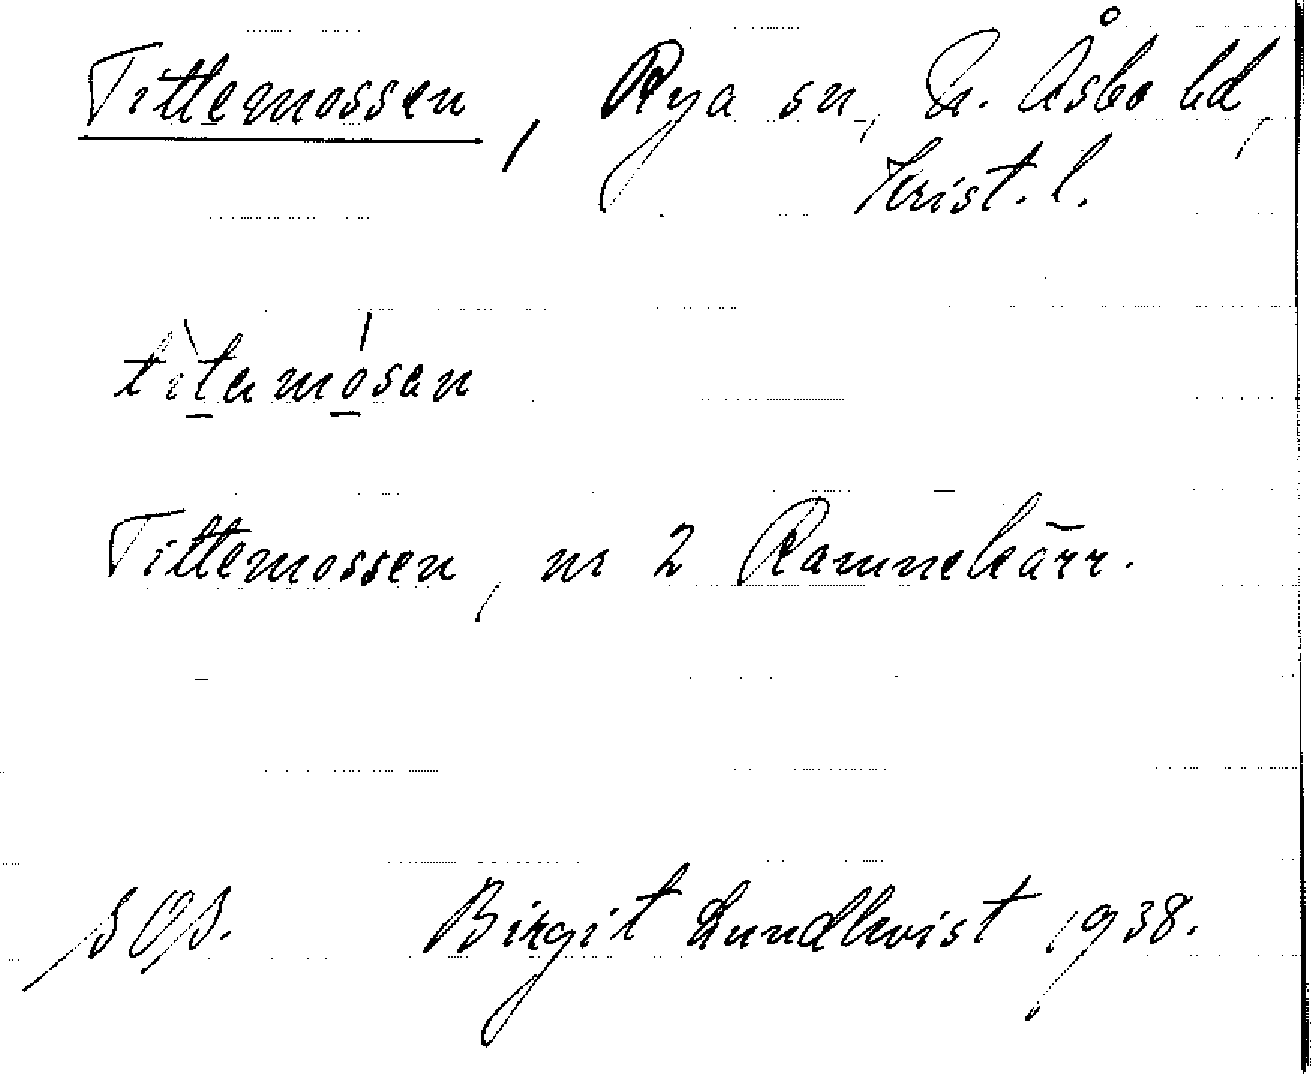 Tittemossen, Rya sn, N. Åsbo hd,
Krist. l.
titemosen
Tittemossen, nr 2 Ramnekärr.
Birgit Lundkvist 1938.